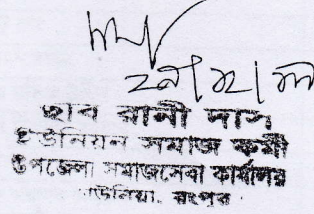 ছবি রানী দাস
ইউনিয়ন সমাজ কর্মী
উপজেলা সমাজসেবা কার্যালয়
কাউনিয়া, রংপুর